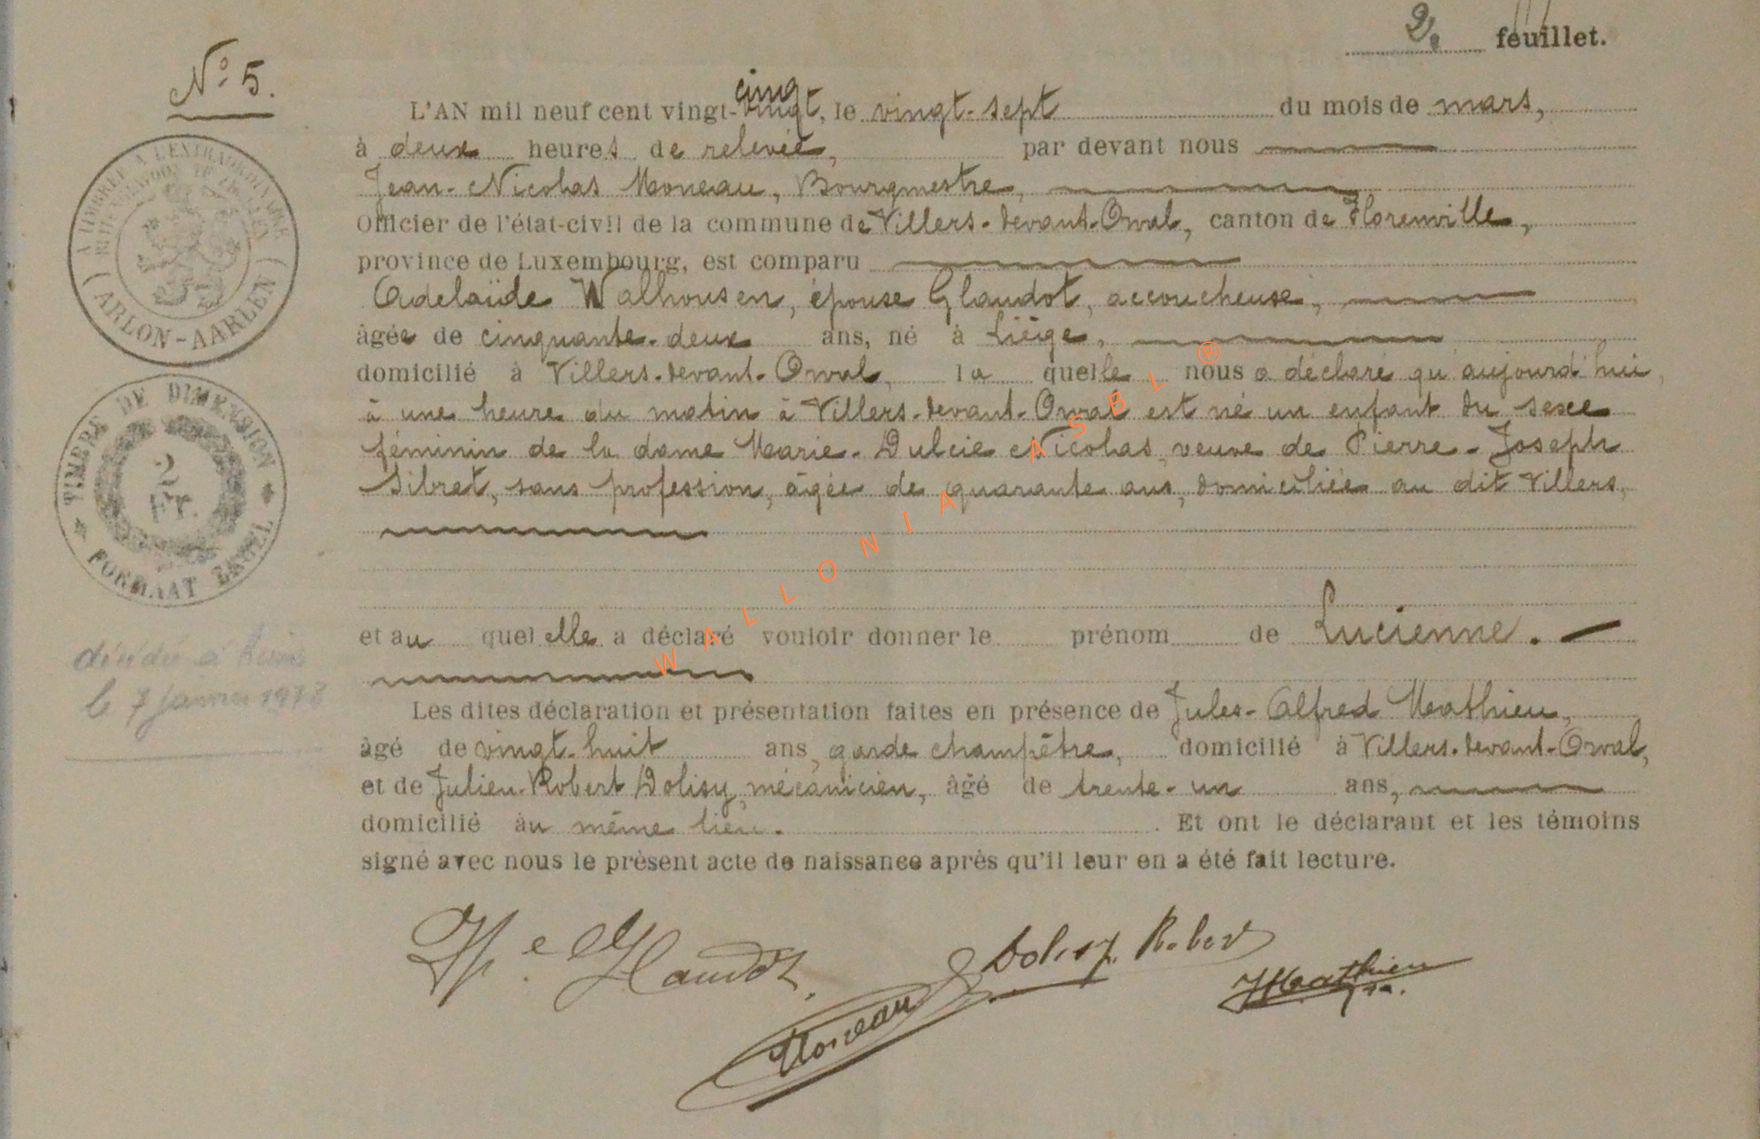 2e feuillet.
N° 5.
L'AN mil neuf cent vingt-cinq, le vingt-sept du mois de mars,
à deux heures de relevée, par devant nous
Jean-Nicolas Moneau, Bourgmestre,
Officier de l'état-civil de la commune de Villers-devant-Orval, canton de Florenville,
province de Luxembourg, est comparu
Adelaïde Walhousen, épouse Glaudot, accoucheuse,
âgée de cinquante-deux ans, né à Liège,
domicilié à Villers-devant-Orval, laquelle nous a déclaré qu'aujourd'hui,
à une heure du matin à Villers-devant-Orval est né un enfant du sexe
féminin de la dame Marie-Dulcie Nicolas, veuve de Pierre-Joseph
Sibret, sans profession, âgée de quarante ans, domiciliée au dit Villers,
et au quel elle a déclaré vouloir donner le prénom de Lucienne.
Les dites déclaration et présentation faites en présence de Jules-Alfred Mathieu,
âgé de vingt-huit ans, garde champêtre, domicilié à Villers-devant-Orval,
et de Julien-Robert Dolisy, mécanicien, âgé de trente-un ans,
domicilié au même lieu. Et ont le déclarant et les témoins
signé avec nous le présent acte de naissance après qu'il leur en a été fait lecture.
Glaudot
Dolisy Robert
JMathieu
Moneau
ARLON-AARLEN
TIMBRE DE DIMENSION
2 Fr.
FORMAAT ZEGEL
décédée à
le 7 janvier 1978
WALLONIA ASBL ®